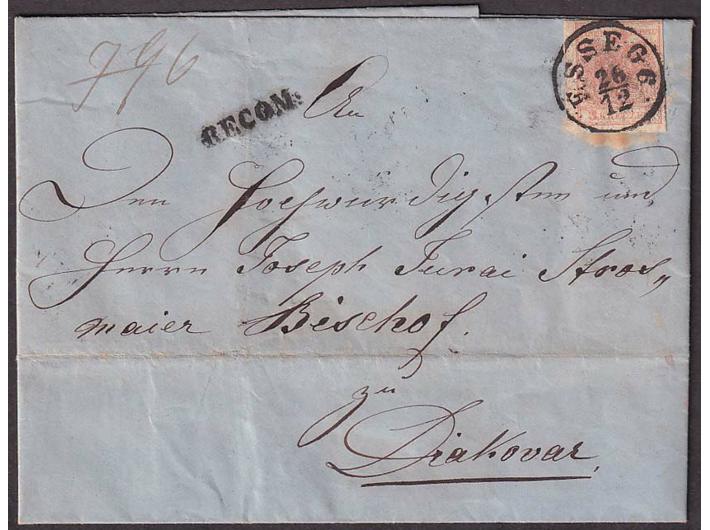 796
ESSEGG
26
12
RECOM:
An
Den Hochwürdigsten und
Herrn Joseph Jurai Stros„
maier Bischof.
zu
Diakovar.